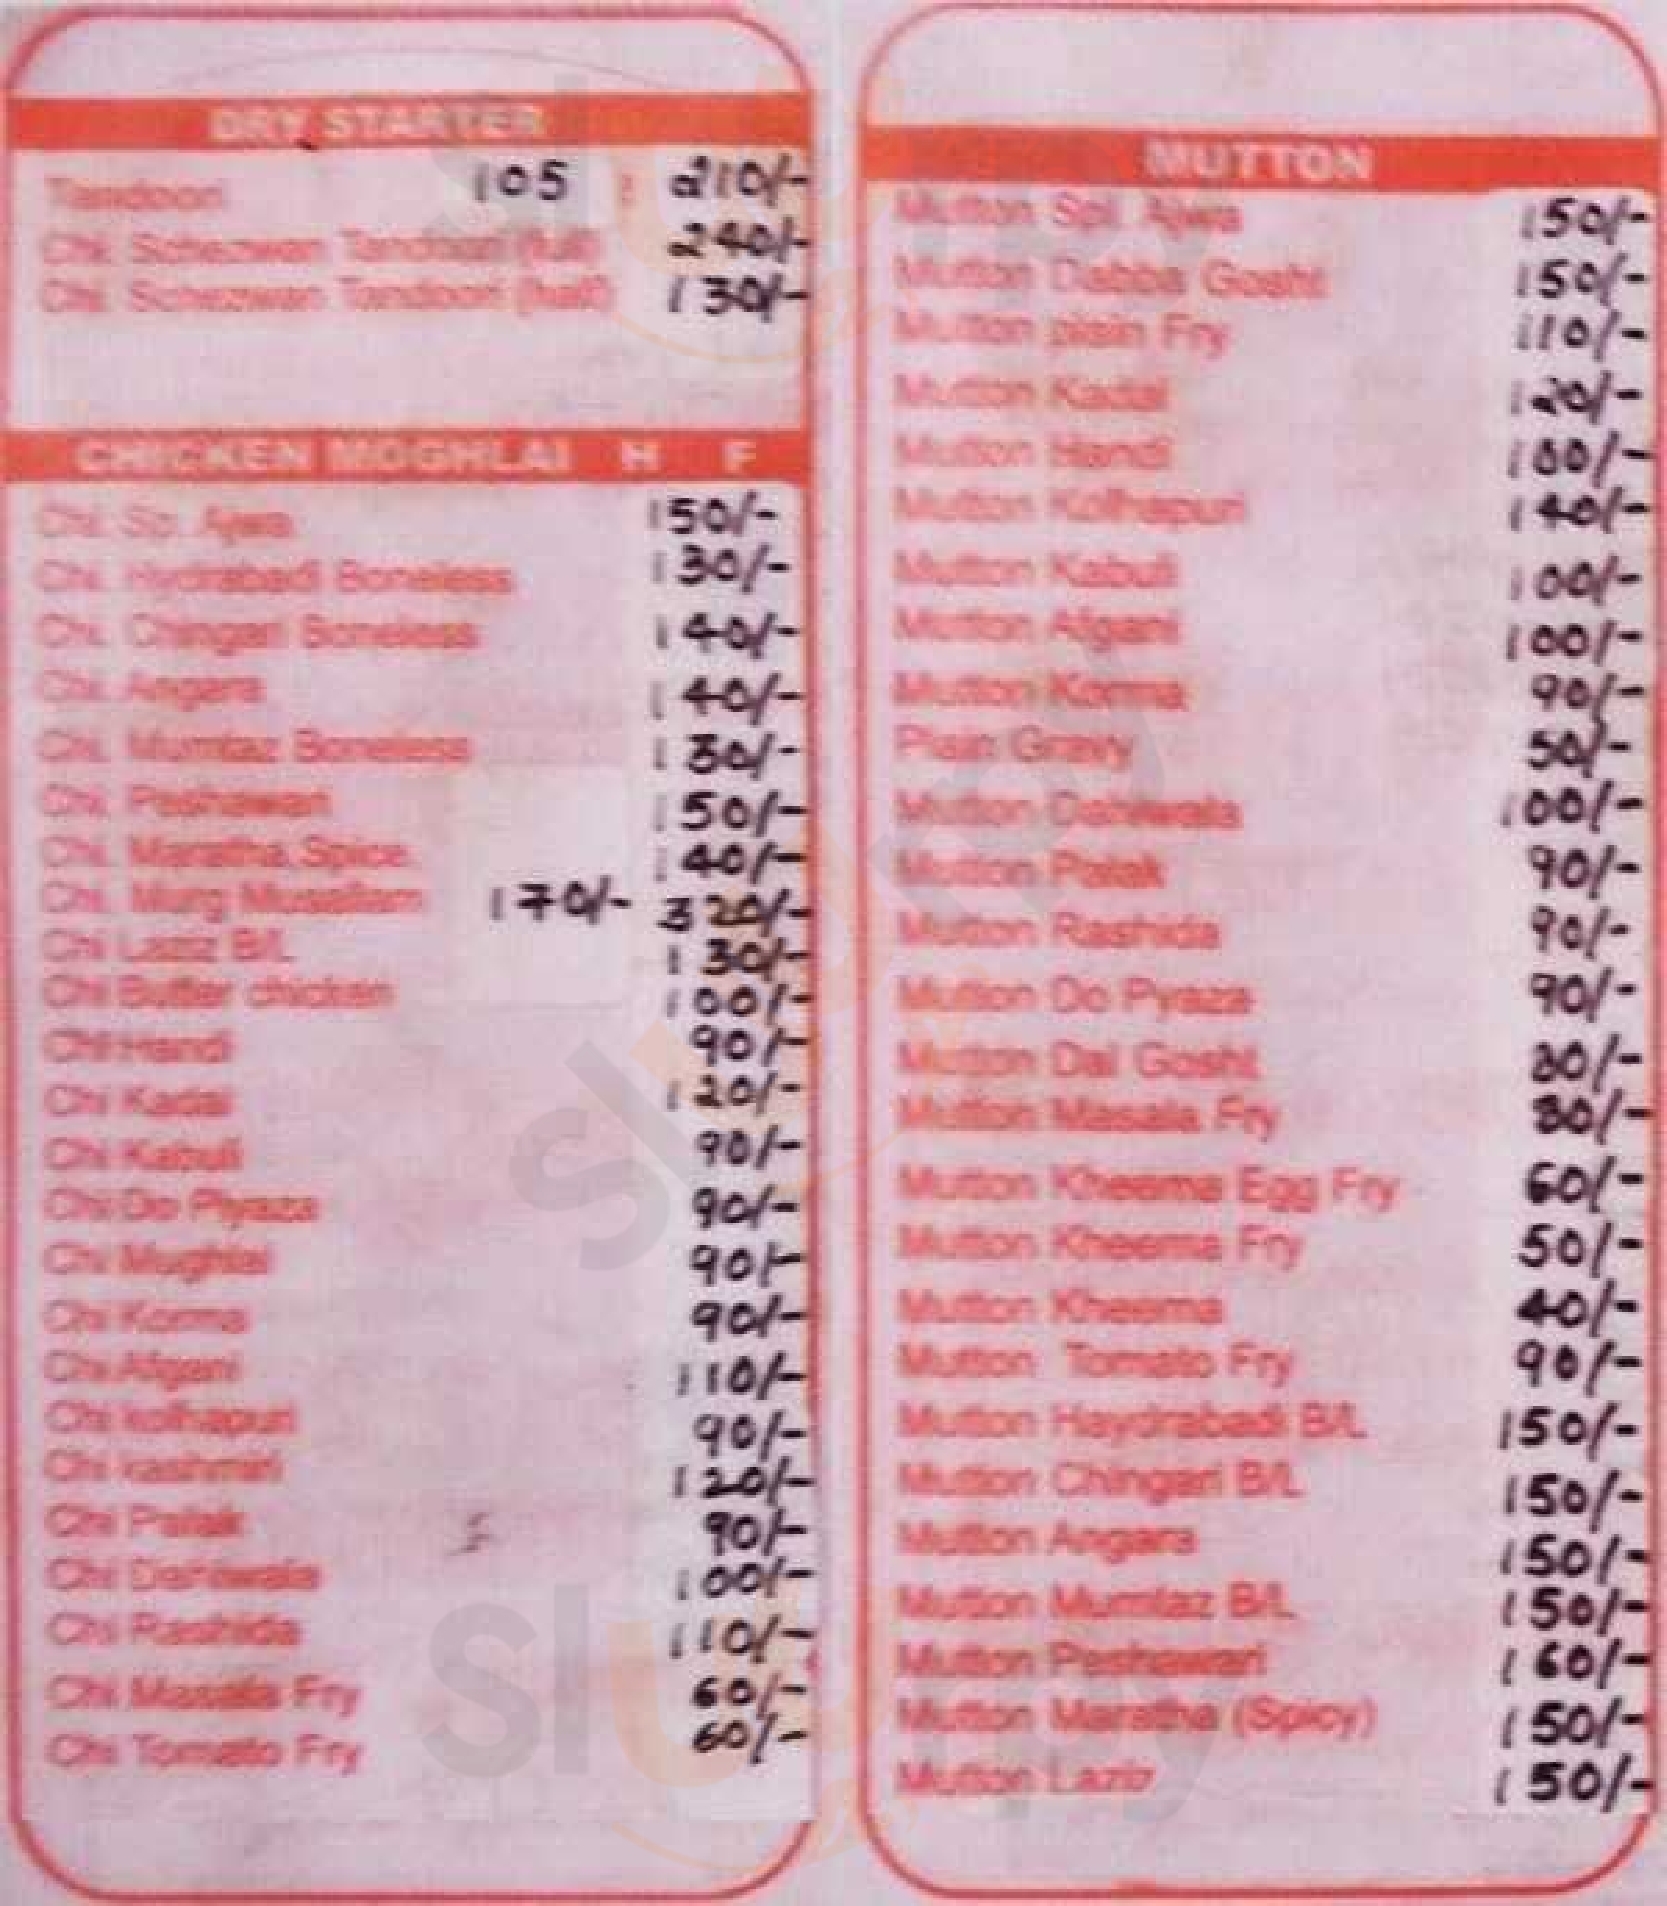 DRY STARTER
Tandoori 105 : 210/-
Chi. Schezwan Tandoori (full) 240/-
Chi. Schezwan Tandoori (half) 130/-
CHICKEN MOGHLAI H F
Chi. Sp. Ajwa 150/-
Chi. Hydrabadi Boneless 130/-
Chi. Chingari Boneless 140/-
Chi. Angara 140/-
Chi. Mumtaz Boneless 130/-
Chi. Peshawari 150/-
Chi. Maratha Spice 140/-
Chi. Murg Musallam 170/- 320/-
Chi Laziz B/L 130/-
Chi Butter chicken 100/-
Chi Handi 90/-
Chi Kadai 120/-
Chi Kabuli 90/-
Chi Do Piyaza 90/-
Chi Mughlai 90/-
Chi Korma 90/-
Chi Afgani 110/-
Chi kolhapuri 90/-
Chi kashmiri 120/-
Chi Palak 90/-
Chi Dahiwala 100/-
Chi Rashida 110/-
Chi Masala Fry 60/-
Chi Tomato Fry 60/-
MUTTON
Mutton Spl. Ajwa 150/-
Mutton Dabba Gosht 150/-
Mutton plain Fry 110/-
Mutton Kadai 120/-
Mutton Handi 100/-
Mutton Kolhapuri 140/-
Mutton Kabuli 100/-
Mutton Afgani 100/-
Mutton Korma 90/-
Plain Gravy 50/-
Mutton Dahiwala 100/-
Mutton Palak 90/-
Mutton Rashida 90/-
Mutton Do Pyaza 90/-
Mutton Dal Gosht 80/-
Mutton Masala Fry 80/-
Mutton Kheema Egg Fry 60/-
Mutton Kheema Fry 50/-
Mutton Kheema 40/-
Mutton Tomato Fry 90/-
Mutton Haydrabadi B/L 150/-
Mutton Chingari B/L 150/-
Mutton Angara 150/-
Mutton Mumtaz B/L 150/-
Mutton Peshawari 160/-
Mutton Maratha (Spicy) 150/-
Mutton Laziz 150/-